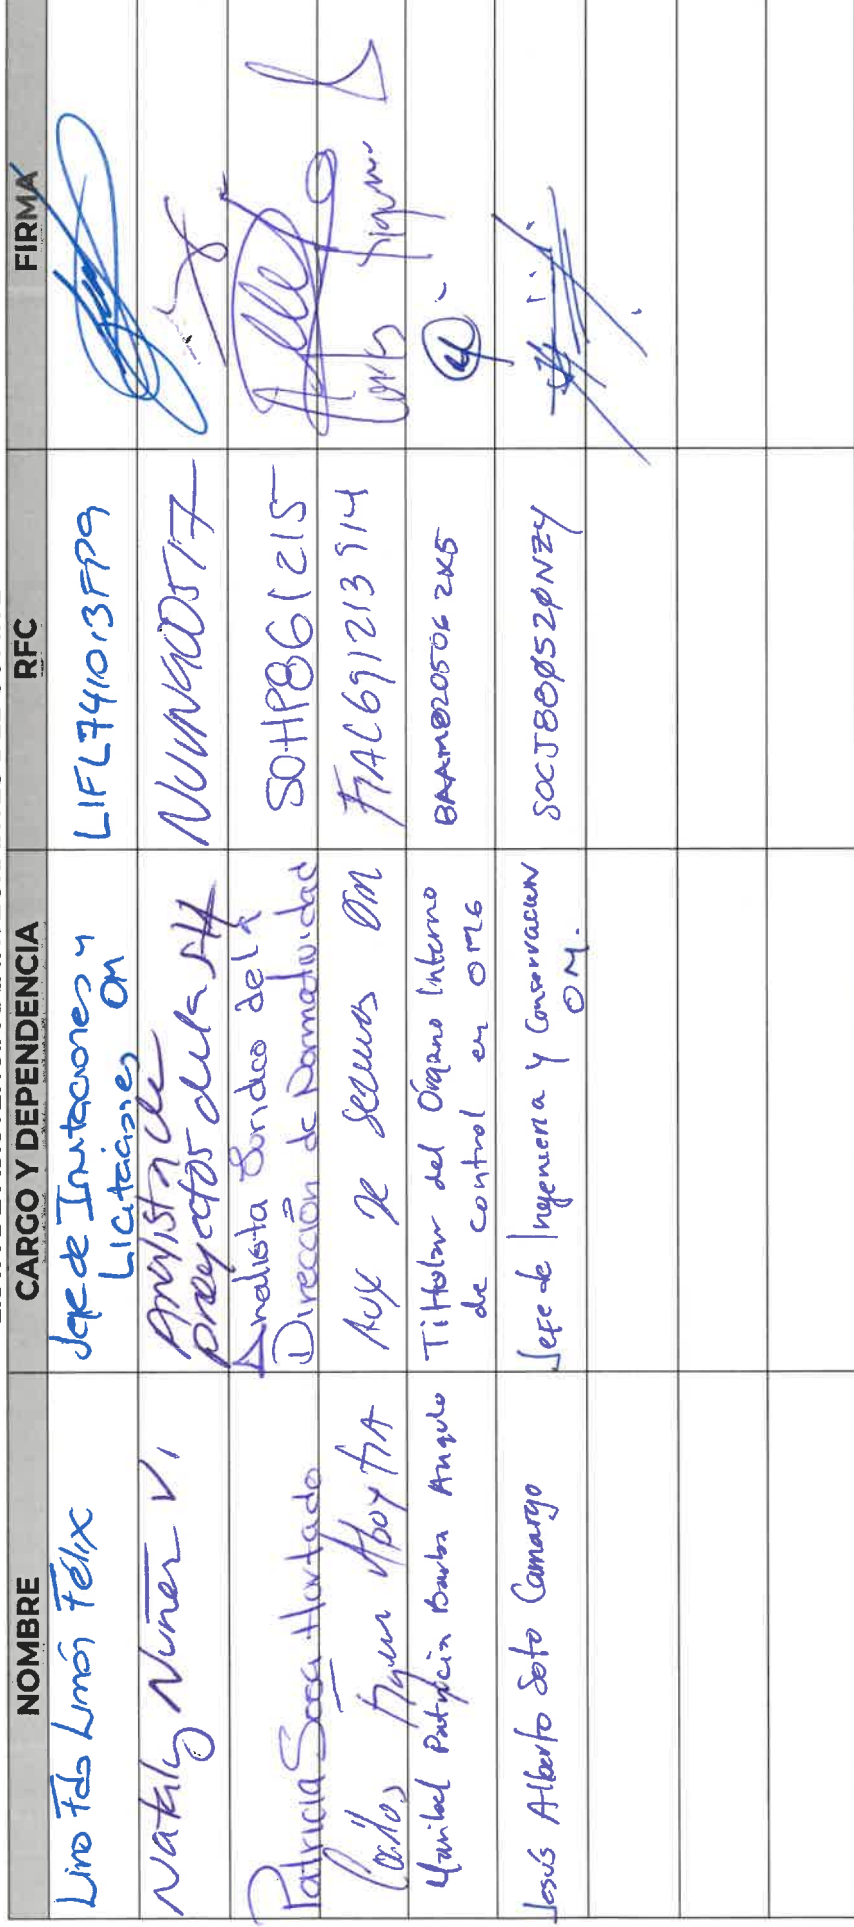 NOMBRE CARGO Y DEPENDENCIA RFC FIRMA
Lino Fdo Limón Félix Jefe de Invitaciones y Licitaciones OM LIFL741013FP9
Nataly Nuñez V. Analista de proyectos de la SH NUVN900517
Patricia Sosa Hurtado Analista Jurídico de la Dirección de Normatividad SOHP861215
Carlos Aux de OM
Maribel Patricia Barba Angulo Tittolar del Órgano Interno de control en OMG BAAM820506 2K5
Jesús Alberto Soto Camargo Jefe de Ingenieria y Conservacion OM. SOCJ880520NZ4